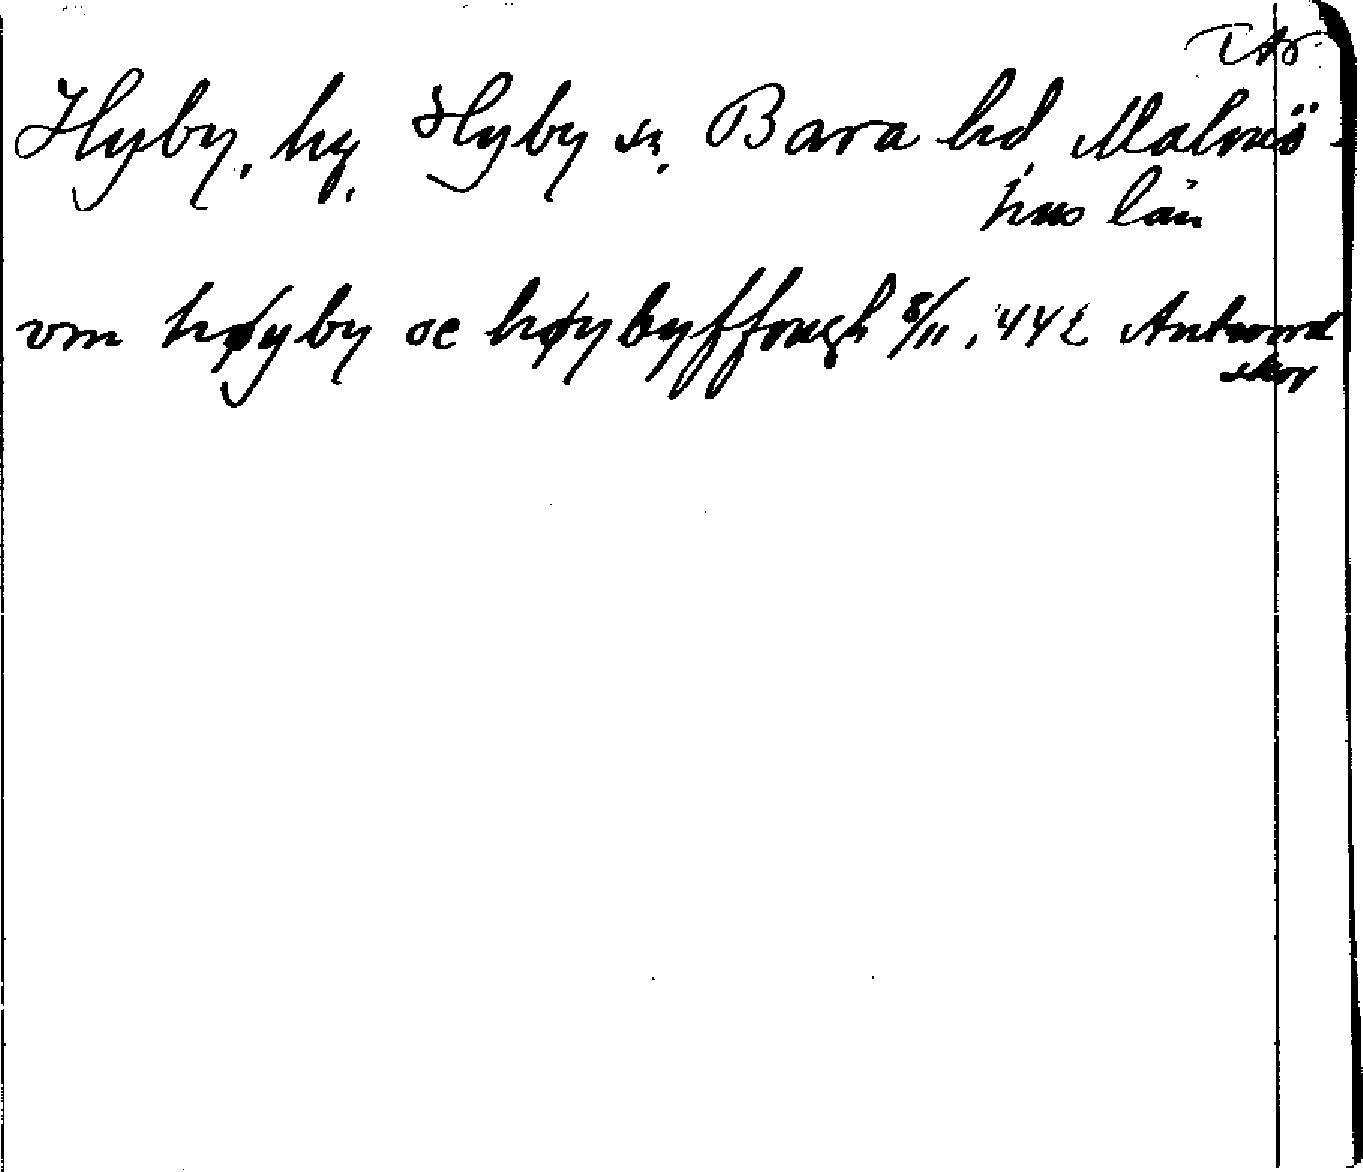 Hyby, by, Hyby sn, Bara hd, Malmö-
hus län
vm høyby oc høybyffough 8/11, 442 Antword
skov